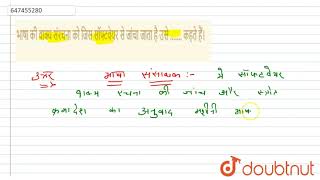 647455280
भाषा की वाक्य संरचना को जिस सॉफ्टवेयर से जांचा जाता है उसे ...... कहते हैं।
उत्तर भाषा संसाधक :- ये सॉफ्टवेयर
वाक्य रचना की जांच और स्त्रोत
क्रमादेश का अनुवाद मशीनी भाष
doubtnut